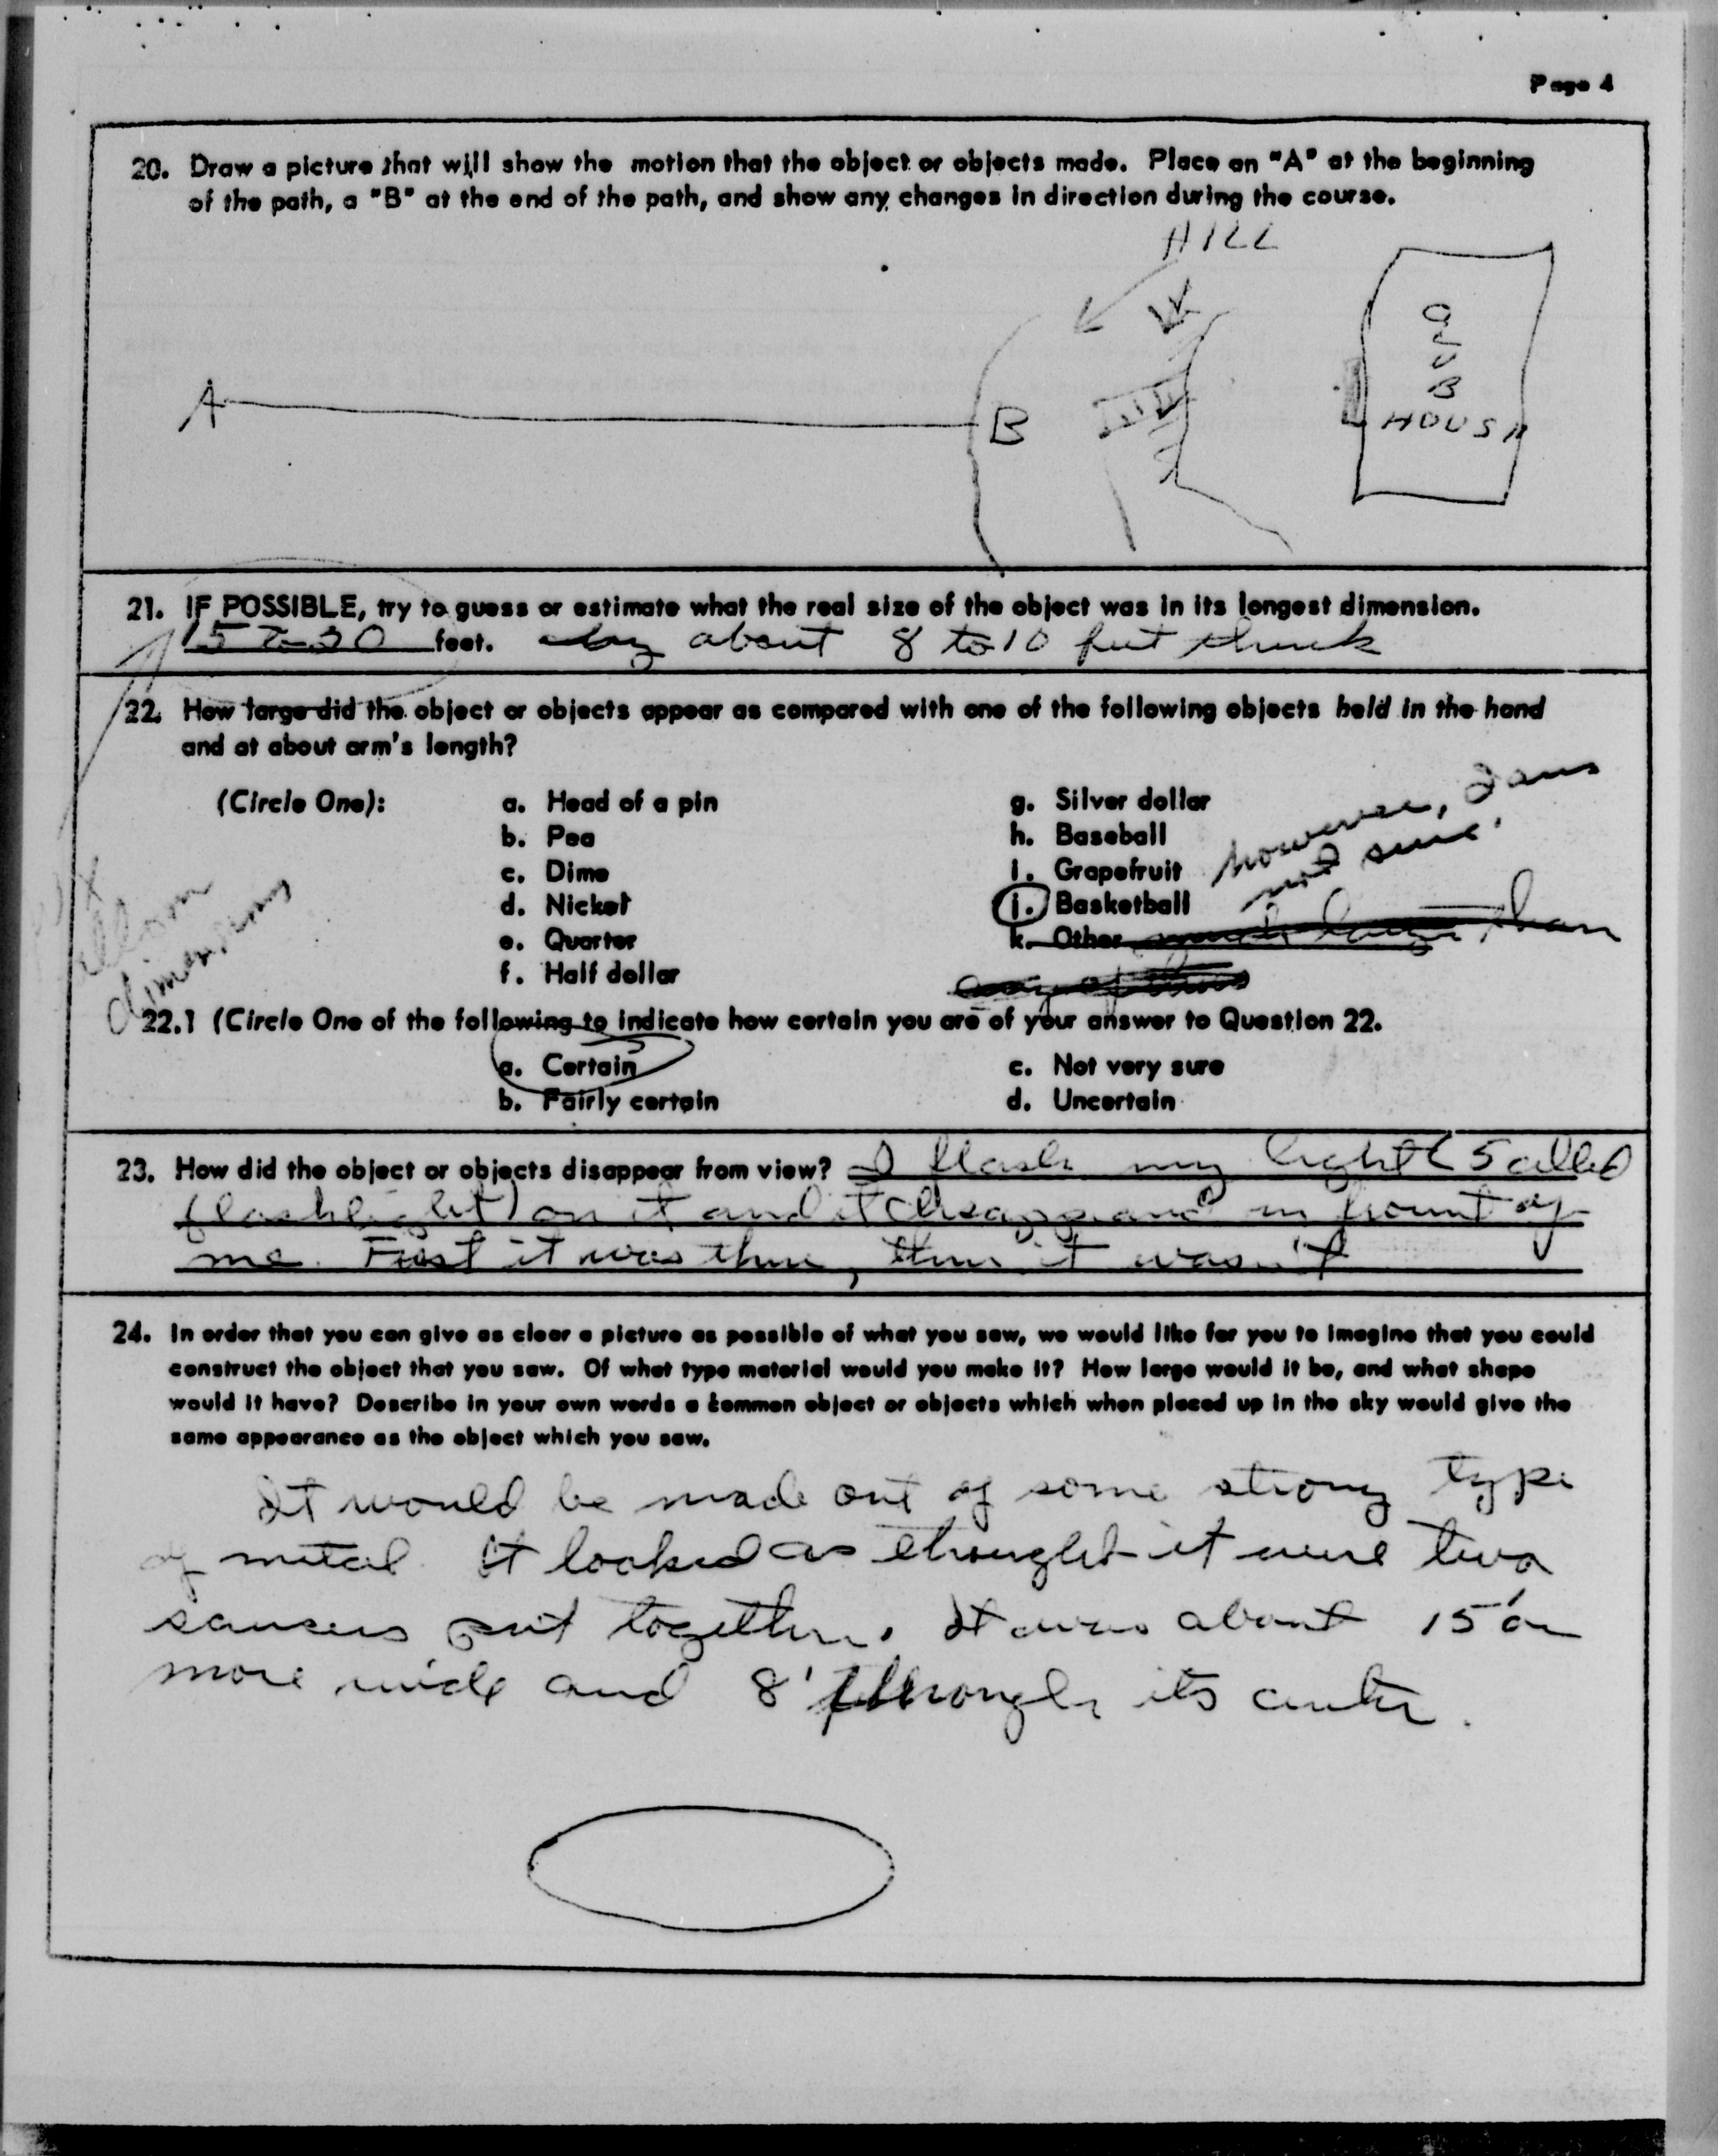 Page 4
20. Draw a picture that will show the motion that the object or objects made. Place an "A" at the beginning
of the path, a "B" at the end of the path, and show any changes in direction during the course.
HILL
A
B
CLUB
HOUSE
21. IF POSSIBLE, try to guess or estimate what the real size of the object was in its longest dimension.
15 to 20 feet. by about 8 to 10 feet thick
22. How large did the object or objects appear as compared with one of the following objects held in the hand
and at about arm's length?
(Circle One):
a. Head of a pin
b. Pea
c. Dime
d. Nickel
e. Quarter
f. Half dollar
g. Silver dollar
h. Baseball
i. Grapefruit
j. Basketball
k. Other much larger than
any of these
however, I am
not sure.
dimensions
22.1 (Circle One of the following to indicate how certain you are of your answer to Question 22.
a. Certain
b. Fairly certain
c. Not very sure
d. Uncertain
23. How did the object or objects disappear from view? I flash my light (5 celled
flashlight) on it and it disappeared in frount of
me. First it was there, then it wasn't
24. In order that you can give as clear a picture as possible of what you saw, we would like for you to imagine that you could
construct the object that you saw. Of what type material would you make it? How large would it be, and what shape
would it have? Describe in your own words a common object or objects which when placed up in the sky would give the
same appearance as the object which you saw.
It would be made out of some strong type
of metal. It looked as throught it were two
saucers put together. It was about 15' or
more wide and 8' through its center.